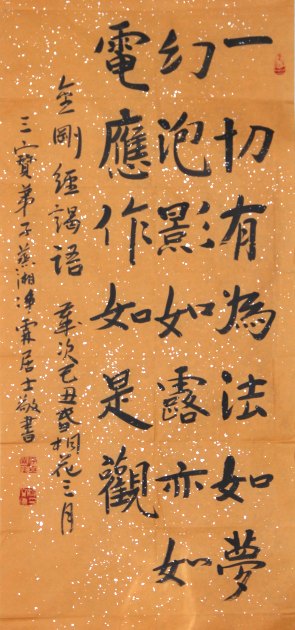 一切有為法如夢
幻泡影如露亦如
電應作如是觀
金剛經謁語 歲次己丑春桐花三月
三寶弟子 湘 霖居士敬書